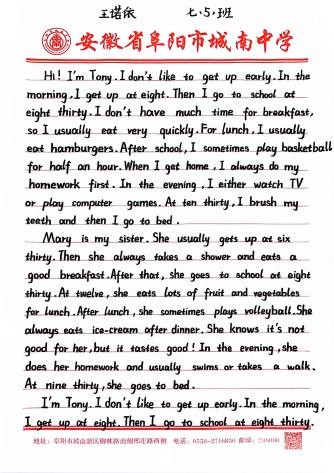 王诺依 七.5.班
安徽省阜阳市城南中学
Hi! I'm Tony. I don't like to get up early. In the
morning, I get up at eight. Then I go to school at
eight thirty. I don't have much time for breakfast,
so I usually eat very quickly. For lunch, I usually
eat hamburgers. After school, I sometimes play basketball
for half an hour. When I get home, I always do my
homework first. In the evening, I either watch TV
or play computer games. At ten thirty, I brush my
teeth and then I go to bed.
Mary is my sister. She usually gets up at six
thirty. Then she always takes a shower and eats a
good breakfast. After that, she goes to school at eight
thirty. At twelve, she eats lots of fruit and vegetables
for lunch. After lunch, she sometimes plays volleyball. She
always eats ice-cream after dinner. She knows it's not
good for her, but it tastes good! In the evening, she
does her homework and usually swims or takes a walk.
At nine thirty, she goes to bed.
I'm Tony. I don't like to get up early. In the morning,
I get up at eight. Then I go to school at eight thirty.
地址：阜阳市城南新区柳林路南侧邢庄路西侧 电话：0558-2716830 邮编：236000